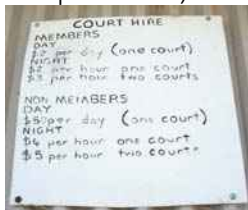 COURT HIRE
MEMBERS
DAY
per day (one court)
NIGHT
$2 per hour one court
$3 per hour two courts
NON MEMBERS
DAY
per day (one court)
NIGHT
$4 per hour one court
$5 per hour two courts